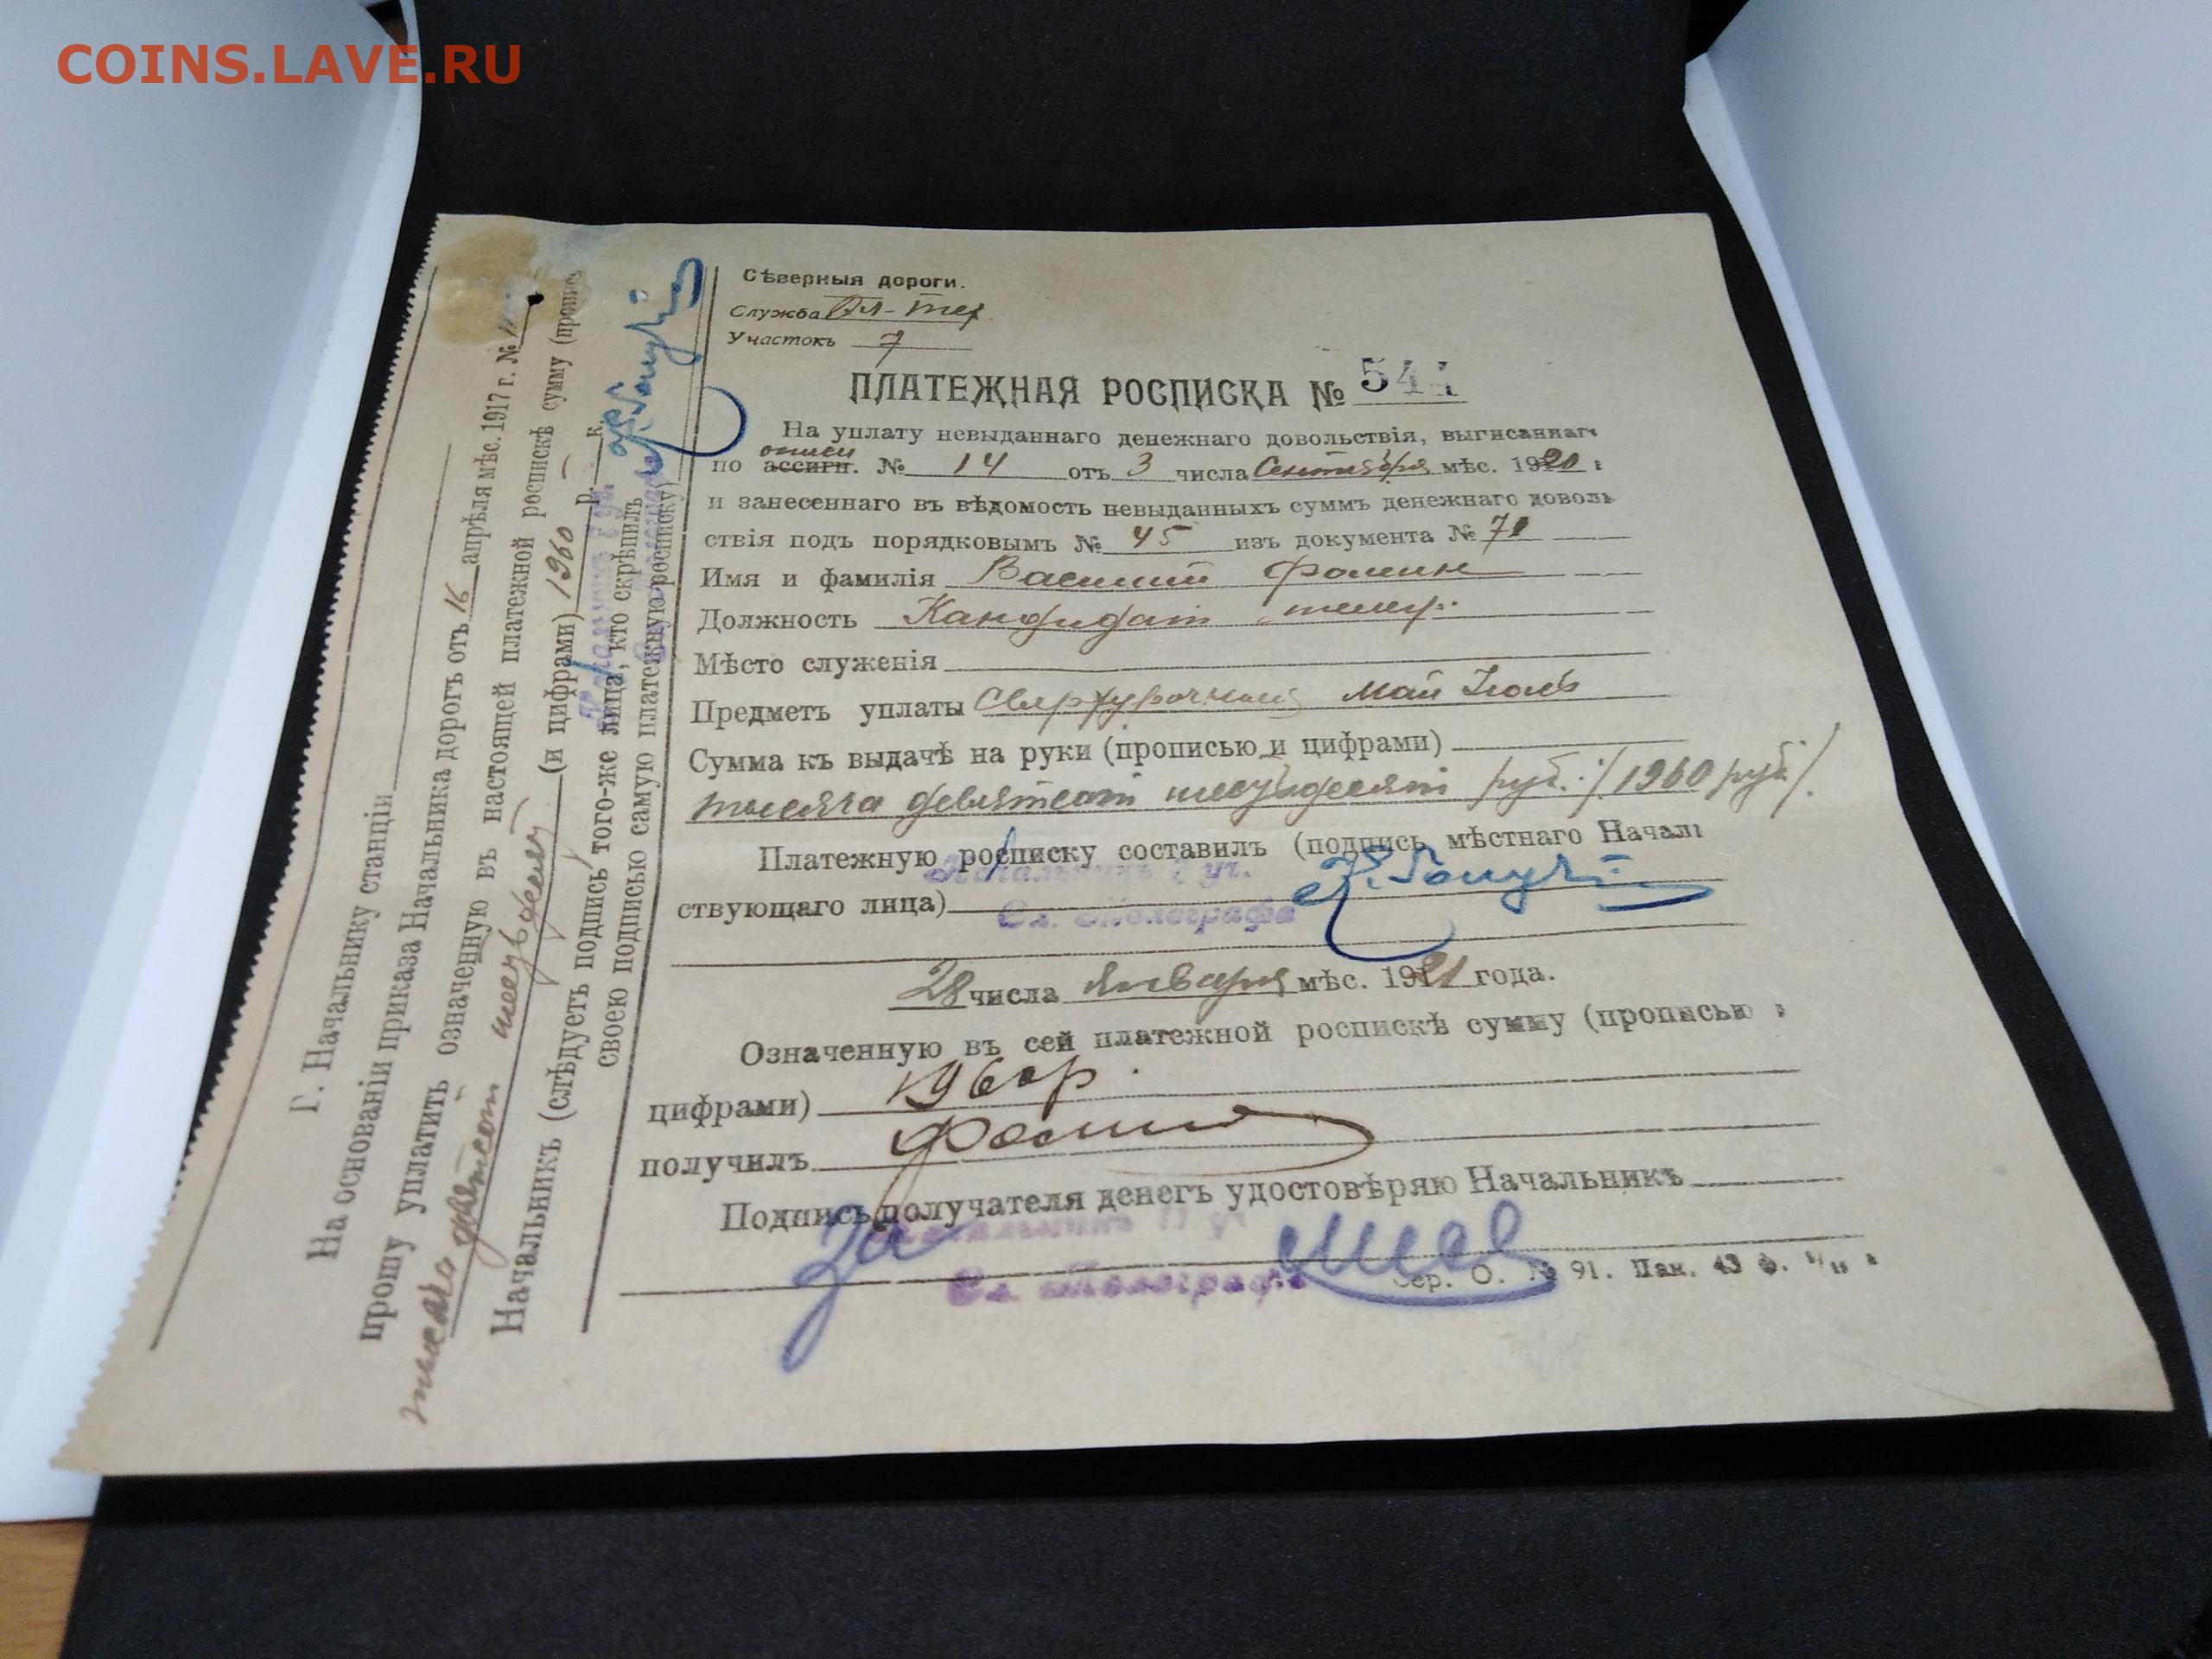 COINS.LAVE.RU
Сѣверныя дороги.
Служба Эл-тех
Участокъ 7
ПЛАТЕЖНАЯ РОСПИСКА № 544
На уплату невыданнаго денежнаго довольствія, выписаннаг
описи
по ассигн. № 14 отъ 3 числа Сентября мѣс. 1920 г
и занесеннаго въ вѣдомость невыданныхъ суммъ денежнаго доволь
ствія подъ порядковымъ № 45 изъ документа № 71
Имя и фамилія Василий Фомин
Должность Кандидат телегр.
Мѣсто служенія
Предметъ уплаты Сверхурочный Май Июль
Сумма къ выдачѣ на руки (прописью и цифрами)
тысяча девятсот шестьдесят руб. /1960 руб/.
Платежную росписку составилъ (подпись мѣстнаго Началь
Начальникъ 7 уч.
ствующаго лица)
Эл. Телеграфа
28 числа января мѣс. 1921 года.
Означенную въ сей платежной роспискѣ сумму (прописью и
цифрами) 1960р.
получилъ Фомин
Подпись получателя денегъ удостовѣряю Начальникъ
За Начальникъ 7 уч
Эл. Телеграфа
Сер. О. № 91. Пак. 43 ф.
Г. Начальнику станціи
На основаніи приказа Начальника дорогъ отъ 16 апрѣля мѣс. 1917 г. №
прошу уплатить означенную въ настоящей платежной роспискѣ сумму (пропис
тысяча девятсот шестьдесят (и цифрами) 1960 р. — к.
Начальникъ (слѣдуетъ подпись того-же лица, кто скрѣпилъ
своею подписью самую платежную росписку)